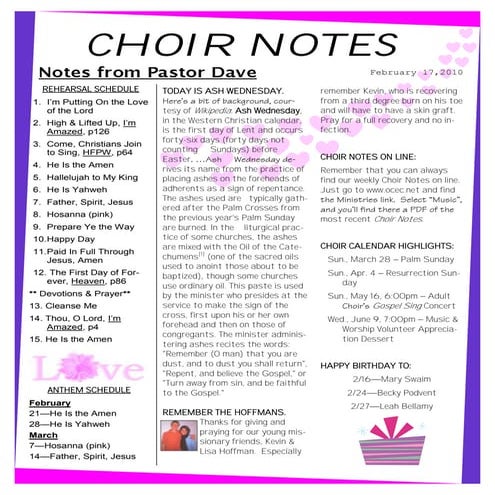 CHOIR NOTES
Notes from Pastor Dave
February 17,2010
REHEARSAL SCHEDULE
1. I'm Putting On the Love
of the Lord
2. High & Lifted Up, I'm
Amazed, p126
3. Come, Christians Join
to Sing, HFPW, p64
4. He Is the Amen
5. Hallelujah to My King
6. He Is Yahweh
7. Father, Spirit, Jesus
8. Hosanna (pink)
9. Prepare Ye the Way
10.Happy Day
11.Paid In Full Through
Jesus, Amen
12. The First Day of For-
ever, Heaven, p86
** Devotions & Prayer**
13. Cleanse Me
14. Thou, O Lord, I'm
Amazed, p4
15. He Is the Amen
Love
ANTHEM SCHEDULE
February
21—He Is the Amen
28—He Is Yahweh
March
7—Hosanna (pink)
14—Father, Spirit, Jesus
TODAY IS ASH WEDNESDAY.
Here's a bit of background, cour-
tesy of Wikipedia: Ash Wednesday,
in the Western Christian calendar,
is the first day of Lent and occurs
forty-six days (forty days not
counting Sundays) before
Easter. ...Ash Wednesday de-
rives its name from the practice of
placing ashes on the foreheads of
adherents as a sign of repentance.
The ashes used are typically gath-
ered after the Palm Crosses from
the previous year's Palm Sunday
are burned. In the liturgical prac-
tice of some churches, the ashes
are mixed with the Oil of the Cate-
chumens[1] (one of the sacred oils
used to anoint those about to be
baptized), though some churches
use ordinary oil. This paste is used
by the minister who presides at the
service to make the sign of the
cross, first upon his or her own
forehead and then on those of
congregants. The minister adminis-
tering ashes recites the words:
"Remember (O man) that you are
dust, and to dust you shall return".
"Repent, and believe the Gospel," or
"Turn away from sin, and be faithful
to the Gospel."
REMEMBER THE HOFFMANS.
Thanks for giving and
praying for our young mis-
sionary friends, Kevin &
Lisa Hoffman. Especially
remember Kevin, who is recovering
from a third degree burn on his toe
and will have to have a skin graft.
Pray for a full recovery and no in-
fection.
CHOIR NOTES ON LINE:
Remember that you can always
find our weekly Choir Notes on line.
Just go to www.ocec.net and find
the Ministries link. Select "Music",
and you'll find there a PDF of the
most recent Choir Notes.
CHOIR CALENDAR HIGHLIGHTS:
Sun., March 28 – Palm Sunday
Sun., Apr. 4 – Resurrection Sun-
day
Sun., May 16, 6:00pm – Adult
Choir's Gospel Sing Concert
Wed., June 9, 7:00pm – Music &
Worship Volunteer Apprecia-
tion Dessert
HAPPY BIRTHDAY TO:
2/16—Mary Swaim
2/24—Becky Podvent
2/27—Leah Bellamy